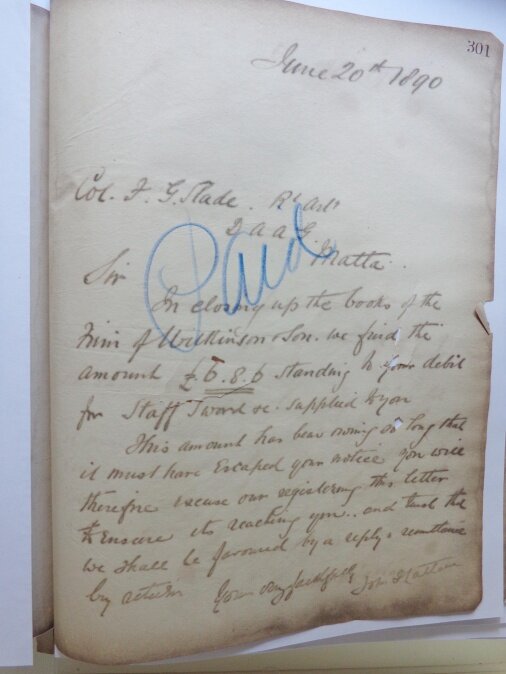 301
June 20th 1890
Col. F. G. Slade. Rl Arty
D a a G
Malta.
Paid
Sir
In closing up the books of the
Firm of Wilkinson & Son. we find the
amount £6.8.6 standing to your debit
for Staff Sword &c. supplied to you
This amount has been owing so long that
it must have Escaped your notice you will
therefore excuse our registering this letter
to Ensure its reaching you.. and trust that
we shall be favoured by a reply & remittance
by return Yours very faithfully
John